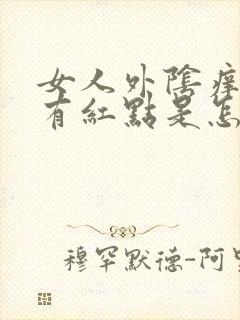 女人外陰痒
有紅點是怎
穆罕默德-阿